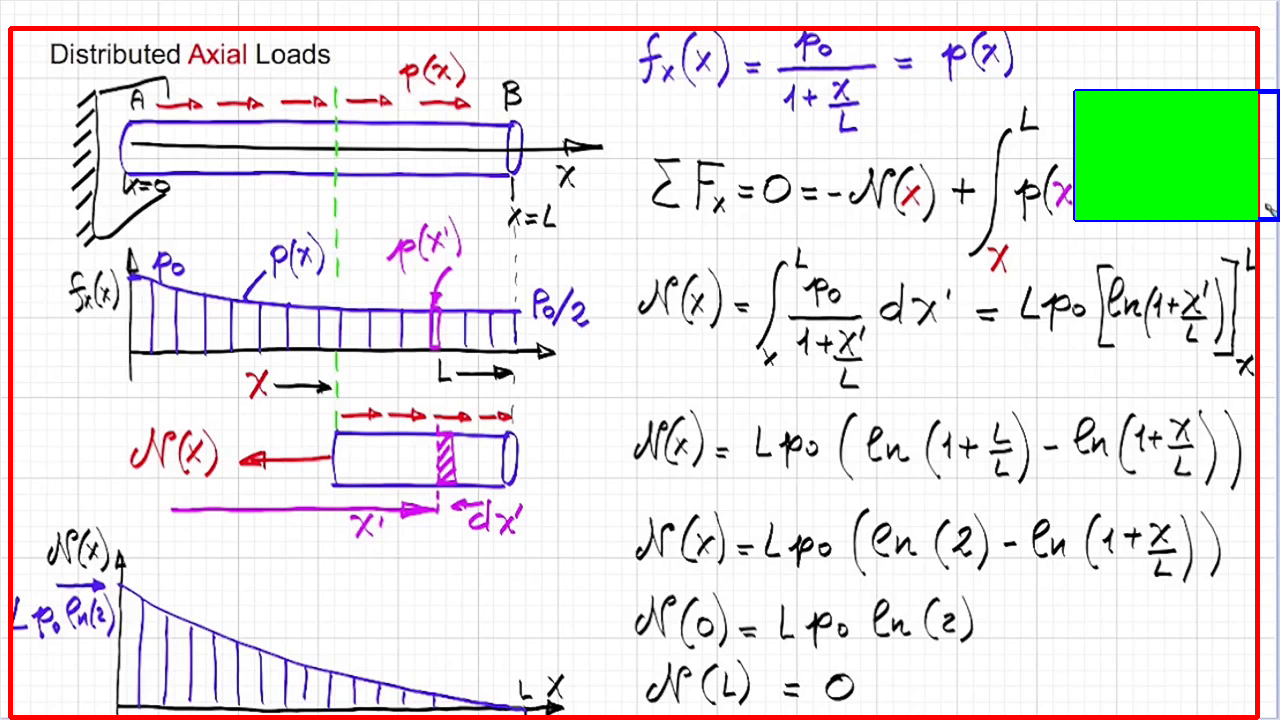 Distributed Axial Loads
p(x)
A
B
x
x=0
x=L
fx(x)
p0
p(x)
p(x')
p0/2
x
L
N(x)
x'
dx'
N(x)
L p0 ln(2)
L x
fx(x) = p0 / (1 + x/L) = p(x)
ΣFx = 0 = -N(x) + ∫_x^L p(x
N(x) = ∫_x^L p0 / (1 + x'/L) dx' = L p0 [ln(1 + x'/L)]_x^L
N(x) = L p0 (ln(1 + L/L) - ln(1 + x/L))
N(x) = L p0 (ln(2) - ln(1 + x/L))
N(0) = L p0 ln(2)
N(L) = 0